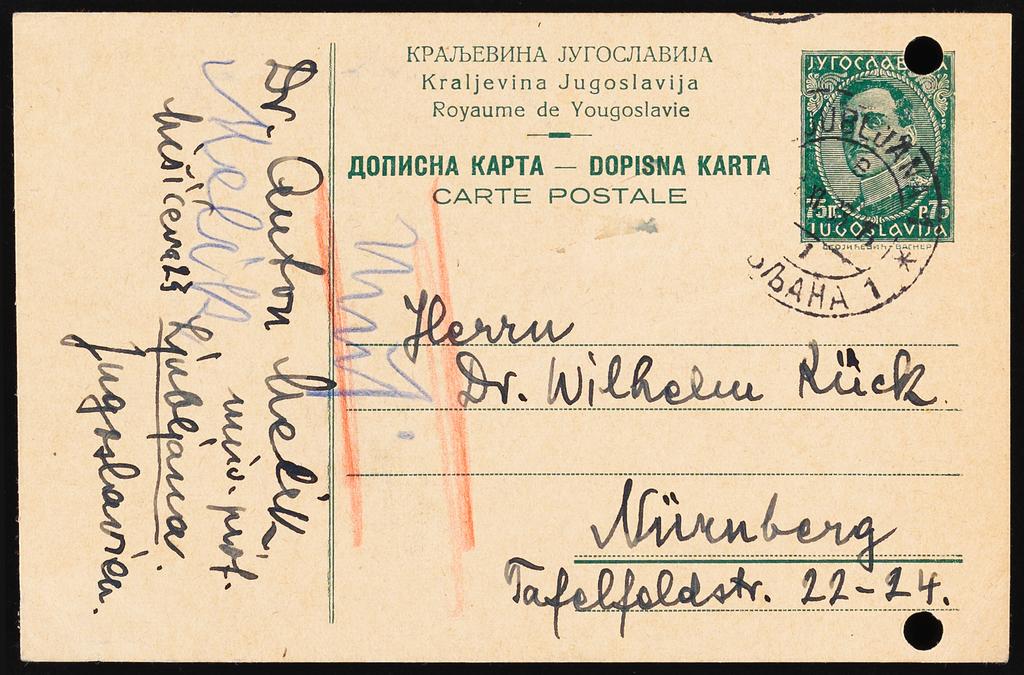 Dr. Anton Melik
univ. prof.
Melik
Mišićeva 23 Ljubljana.
Jugoslavien.
КРАЉЕВИНА ЈУГОСЛАВИЈА
Kraljevina Jugoslavija
Royaume de Yougoslavie
ДОПИСНА КАРТА — DOPISNA KARTA
CARTE POSTALE
ЈУГОСЛАВ А
75П. Р.75
JUGOSLAVIJA
LJUBLJANA
ЉАНА 1 *
Herrn
Dr. Wilhelm Kück
Nürnberg
Tafelfeldstr. 22-24.